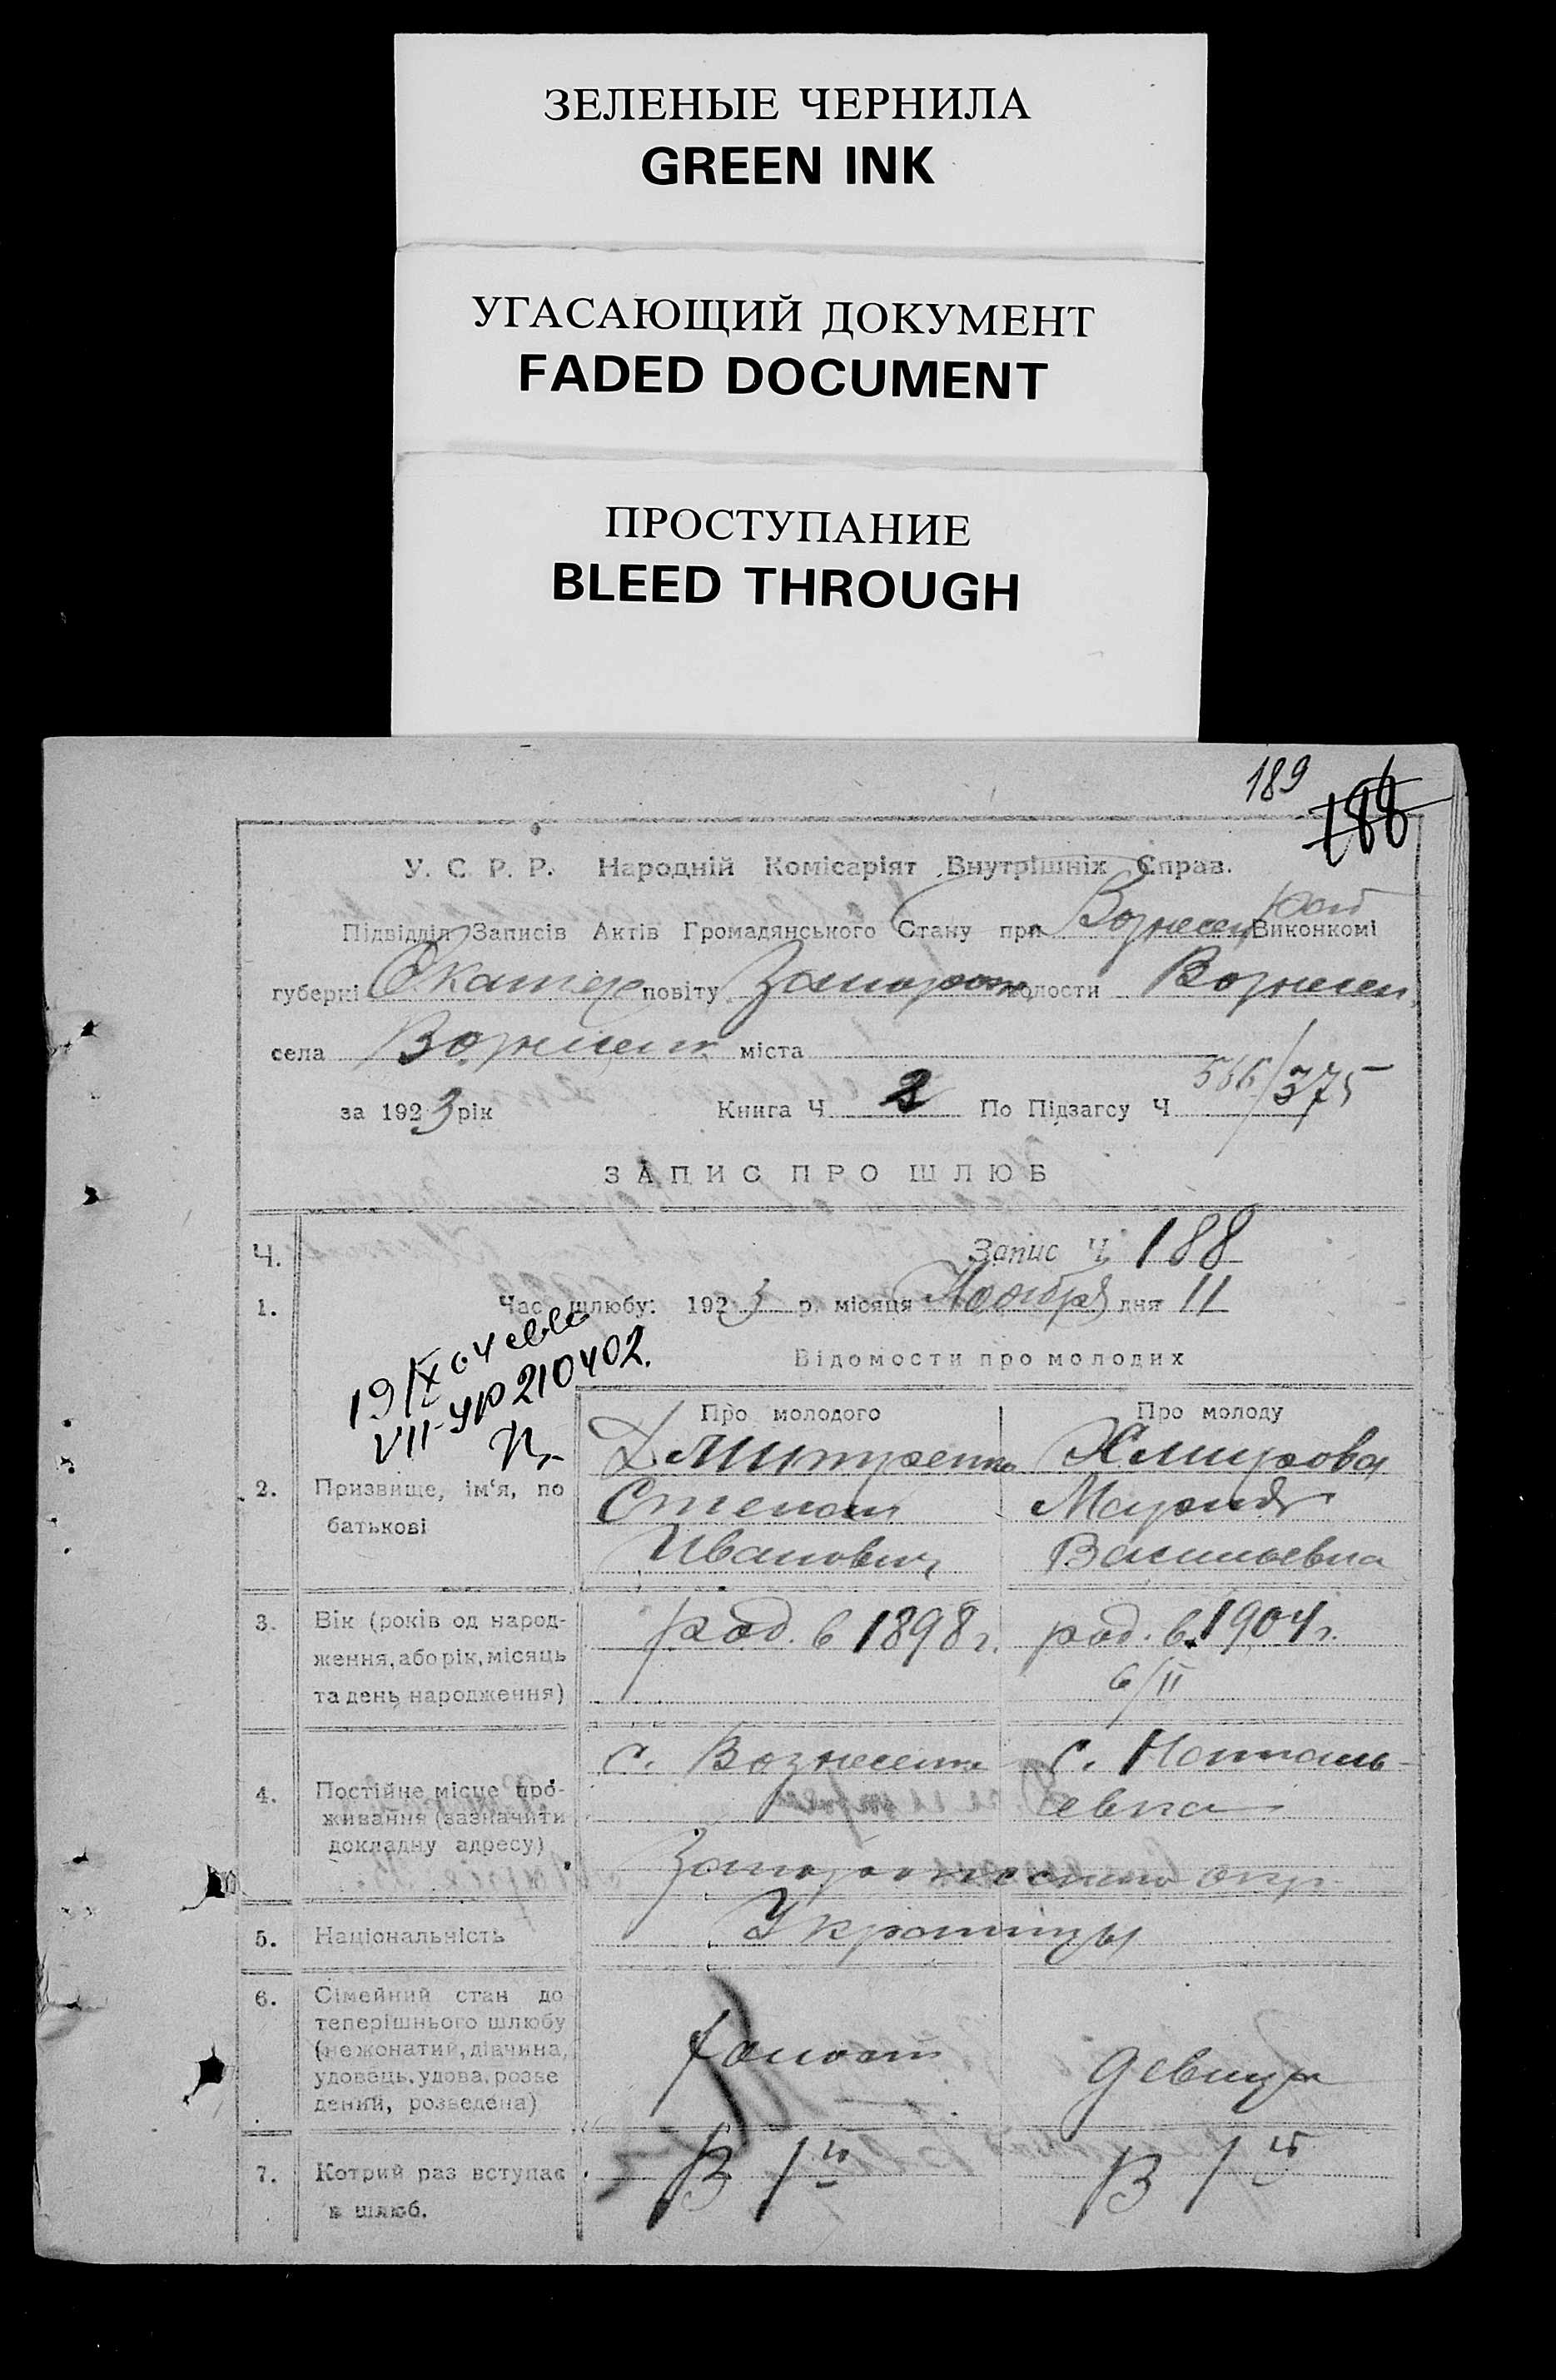 ЗЕЛЕНЫЕ ЧЕРНИЛА
GREEN INK
УГАСАЮЩИЙ ДОКУМЕНТ
FADED DOCUMENT
ПРОСТУПАНИЕ
BLEED THROUGH
189
188
У. С. Р. Р. Народній Комісаріят Внутрішніх Справ.
Підвідділ Записів Актів Громадянського Стану при Вознесен рай Виконкомі
губерні Екатер повіту Запорож волости Вознесен.
села Вознесен міста
за 1923 рік Книга Ч 2 По Підзагсу Ч 566/375
ЗАПИС ПРО ШЛЮБ
Ч. Запис Ч. 188
1. Час шлюбу: 1923 р. місяця Ноября дня 11
Відомости про молодих
19/X 04
VII-УР 210402.
Про молодого Про молоду
Дмитренко Хмирова
2. Призвище, ім'я, по батькові Степан Мария
Иванович Васильевна
3. Вік (років од народ-
ження, або рік, місяць
та день народження)
род. в 1898 г. род. в 1904 г.
6/II
с. Вознесенка с. Наталь-
евка
4. Постійне місце про-
живання (зазначити
докладну адресу)
Запорожского окр.
5. Національність Украинцы
6. Сімейний стан до
теперішнього шлюбу
(нежонатий, дівчина,
удовець, удова, розве
дений, розведена)
холост девица
7. Котрий раз вступає
в шлюб.
В 1й В 1й